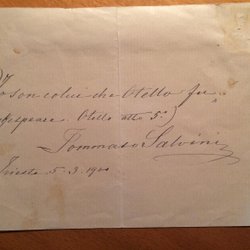 Io son colui che Otello fu"
Otello atto 5º)
Tommaso Salvini
Trieste 5. 3. 19